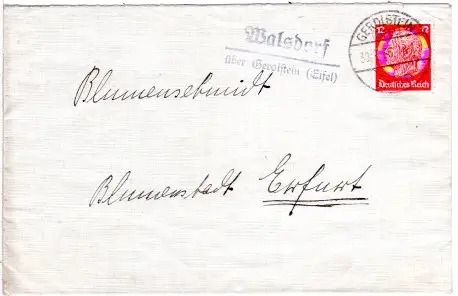 Walsdorf
über Gerolstein (Eifel)
GEROLSTEIN
12 12
Deutsches Reich
Blumenschmidt
Blumenstadt Erfurt